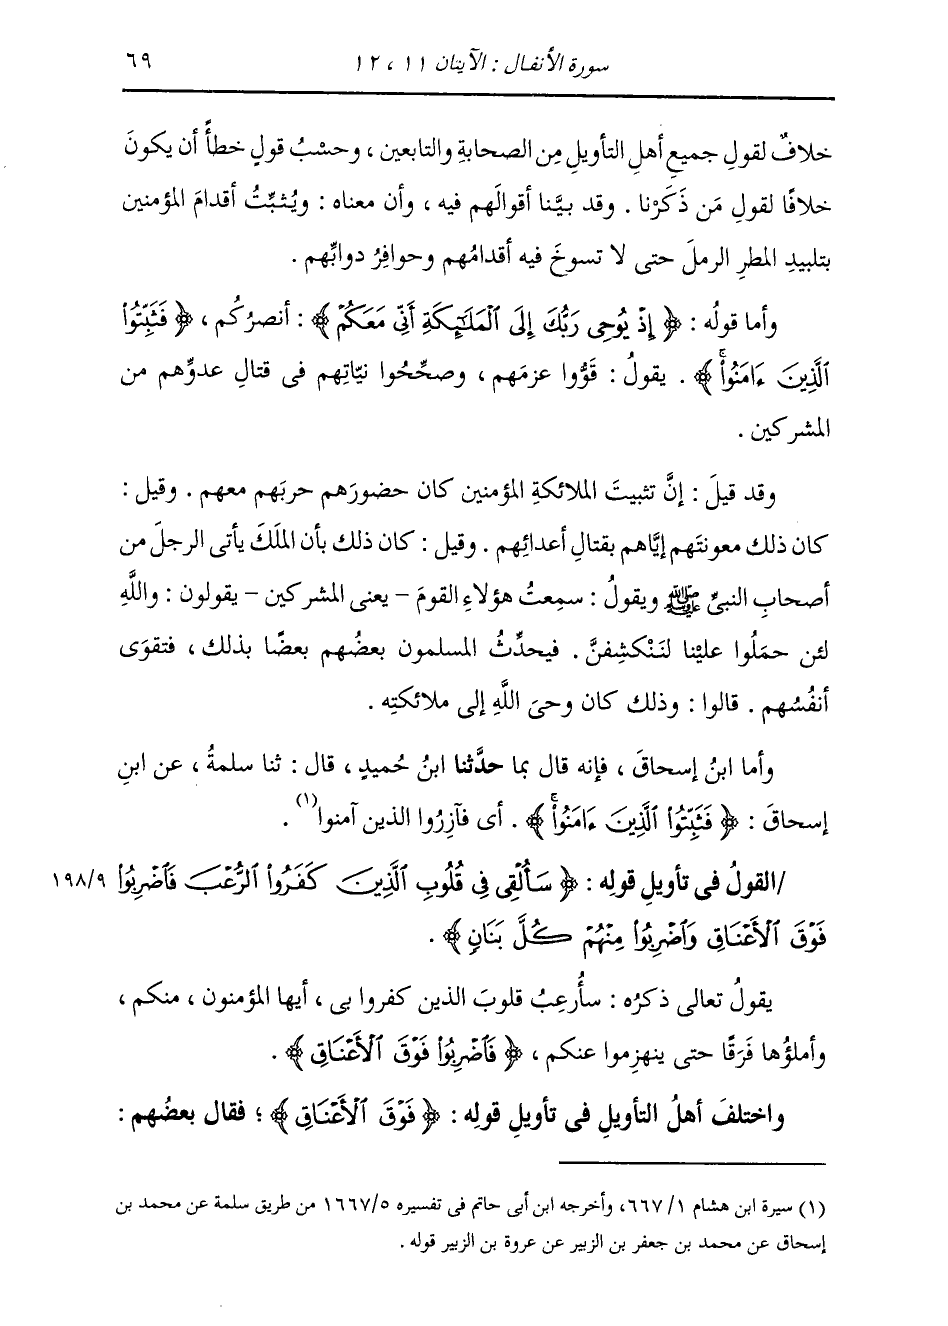 سورة الأنفال : الآيتان ١١ ، ١٢ ٦٩
خلافٌ لقولِ جميعِ أهلِ التأويلِ مِن الصحابةِ والتابعين ، وحسْبُ قولٍ خطأً أن يكونَ
خلافًا لقولِ مَن ذَكَرْنا . وقد بيَّنا أقوالَهم فيه ، وأن معناه : ويُثبِّتُ أقدامَ المؤمنين
بتلبيدِ المطرِ الرملَ حتى لا تسوخَ فيه أقدامُهم وحوافِرُ دوابِّهم .
وأما قولُه : ﴿ إِذْ يُوحِى رَبُّكَ إِلَى ٱلْمَلَـٰٓئِكَةِ أَنِّى مَعَكُمْ ﴾ : أنصرُكُم ، ﴿ فَثَبِّتُوا۟
ٱلَّذِينَ ءَامَنُوا۟ۚ ﴾ . يقولُ : قَوُّوا عزمَهم ، وصحِّحُوا نيّاتِهم فى قتالِ عدوِّهم من
المشركين .
وقد قيلَ : إنَّ تثبيتَ الملائكةِ المؤمنين كان حضورَهم حربَهم معهم . وقيل :
كان ذلك معونتَهم إيَّاهم بقتالِ أعدائِهم . وقيل : كان ذلك بأن الملَكَ يأتى الرجلَ من
أصحابِ النبىِّ ﷺ ويقولُ : سمِعتُ هؤلاءِ القومَ – يعنى المشركين – يقولون : واللَّهِ
لئن حمَلُوا عليْنا لنَنْكشِفنَّ . فيحدِّثُ المسلمون بعضُهم بعضًا بذلك ، فتقوَى
أنفُسُهم . قالوا : وذلك كان وحىَ اللَّهِ إلى ملائكتِه .
وأما ابنُ إسحاقَ ، فإنه قال بما حدَّثنا ابنُ حُميدٍ ، قال : ثنا سلمةُ ، عن ابنِ
إسحاقَ : ﴿ فَثَبِّتُوا۟ ٱلَّذِينَ ءَامَنُوا۟ۚ ﴾ . أى فآزِرُوا الذين آمنوا(١) .
/القولُ فى تأويلِ قولِه : ﴿ سَأُلْقِى فِى قُلُوبِ ٱلَّذِينَ كَفَرُوا۟ ٱلرُّعْبَ فَٱضْرِبُوا۟ ١٩٨/٩
فَوْقَ ٱلْأَعْنَاقِ وَٱضْرِبُوا۟ مِنْهُمْ كُلَّ بَنَانٍ ﴾ .
يقولُ تعالى ذكرُه : سأُرعِبُ قلوبَ الذين كفروا بى ، أيها المؤمنون ، منكم ،
وأملؤُها فَرَقًا حتى ينهزِموا عنكم ، ﴿ فَٱضْرِبُوا۟ فَوْقَ ٱلْأَعْنَاقِ ﴾ .
واختلفَ أهلُ التأويلِ فى تأويلِ قولِه : ﴿ فَوْقَ ٱلْأَعْنَاقِ ﴾ ؛ فقال بعضُهم :
(١) سيرة ابن هشام ١/ ٦٦٧، وأخرجه ابن أبى حاتم فى تفسيره ١٦٦٧/٥ من طريق سلمة عن محمد بن
إسحاق عن محمد بن جعفر بن الزبير عن عروة بن الزبير قوله .